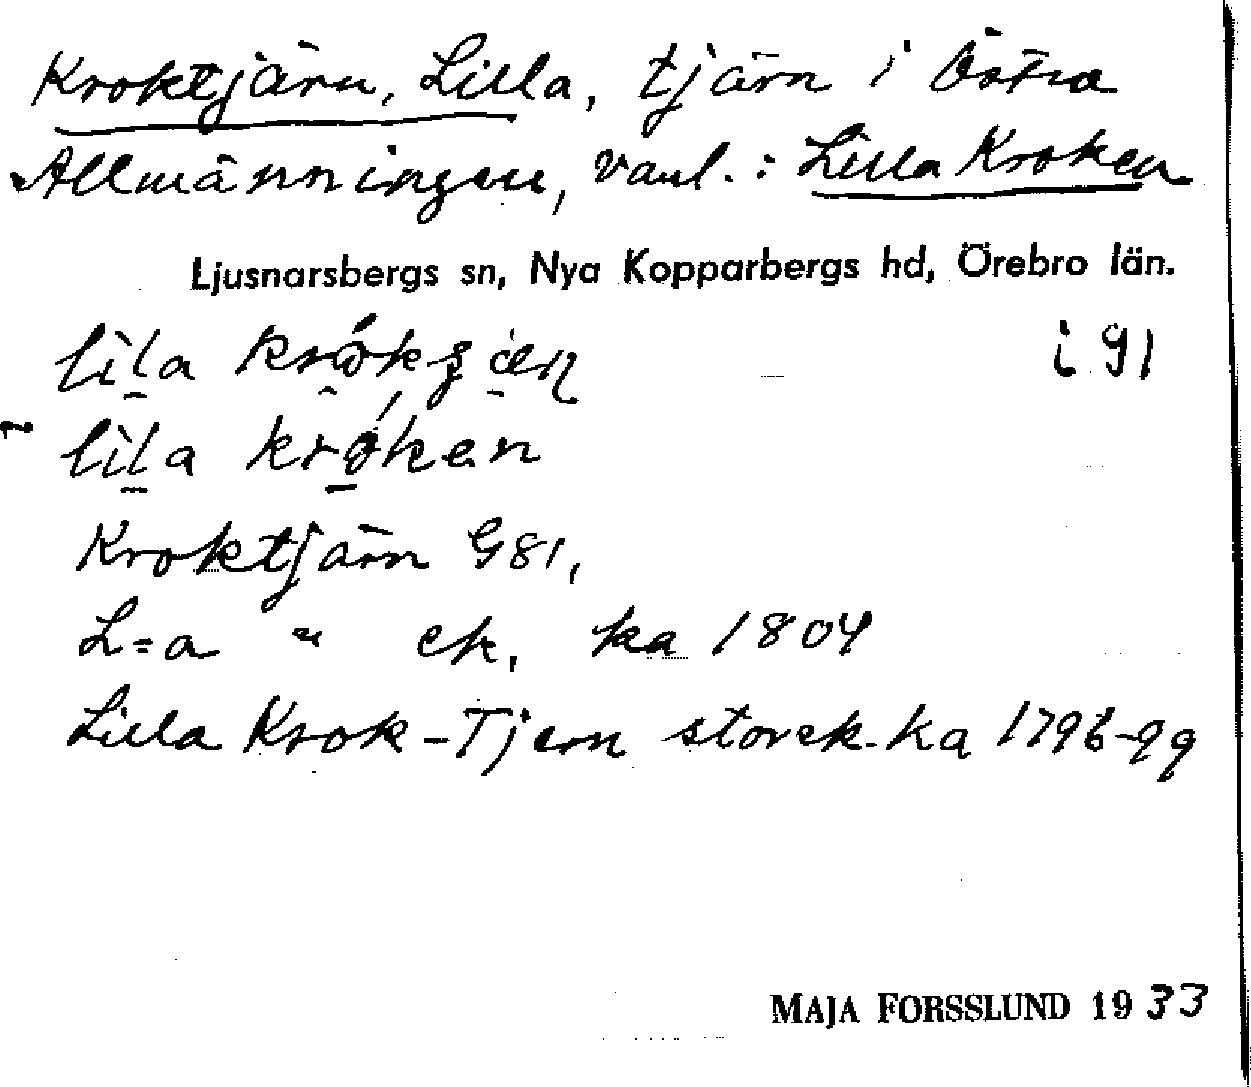 Kroktjärn, Lilla, tjärn i Östra
Allmänningen, vanl.: Lilla Kroken
Ljusnarsbergs sn, Nya Kopparbergs hd, Örebro län.
lila i 91
~ lila kroken
Kroktjärn G81,
L=a " ek. ka 1804
Lilla Krok-Tjern storsk. ka 1796-99
MAJA FORSSLUND 1933